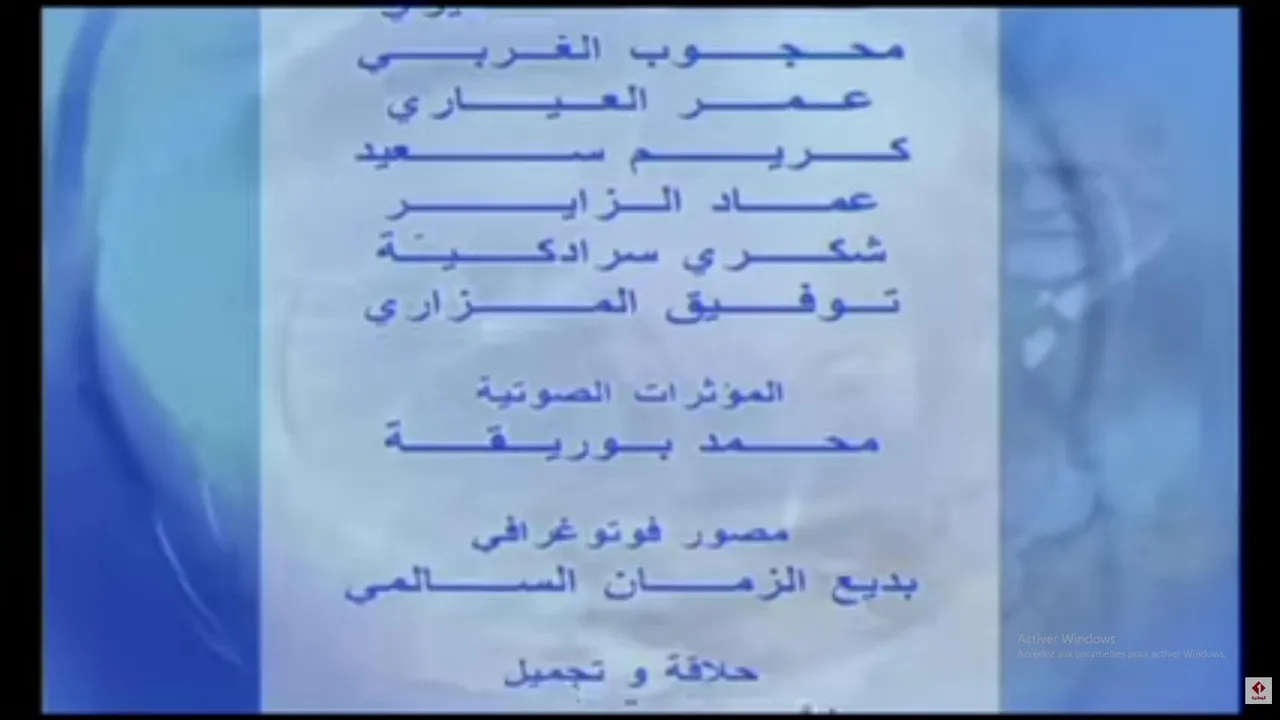 محجوب الغربي
عمر العياري
كريم سعيد
عماد الزاير
شكري سرادكيّة
توفيق المزاري
المؤثرات الصوتية
محمد بوريقة
مصور فوتوغرافي
بديع الزمان السالمي
حلاقة و تجميل
Activer Windows
Accédez aux paramètres pour activer Windows.